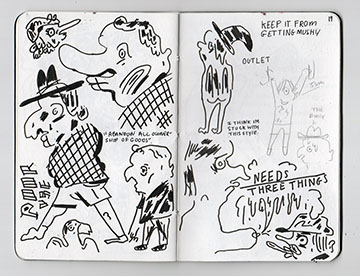 "ABANDON ALL
SHIP OF GOODS"
KEEP IT FROM
GETTING MUSHY
19
OUTLET
I THINK IM
STUCK WITH
THIS STYLE.
THE
NEEDS
THREE THINGS